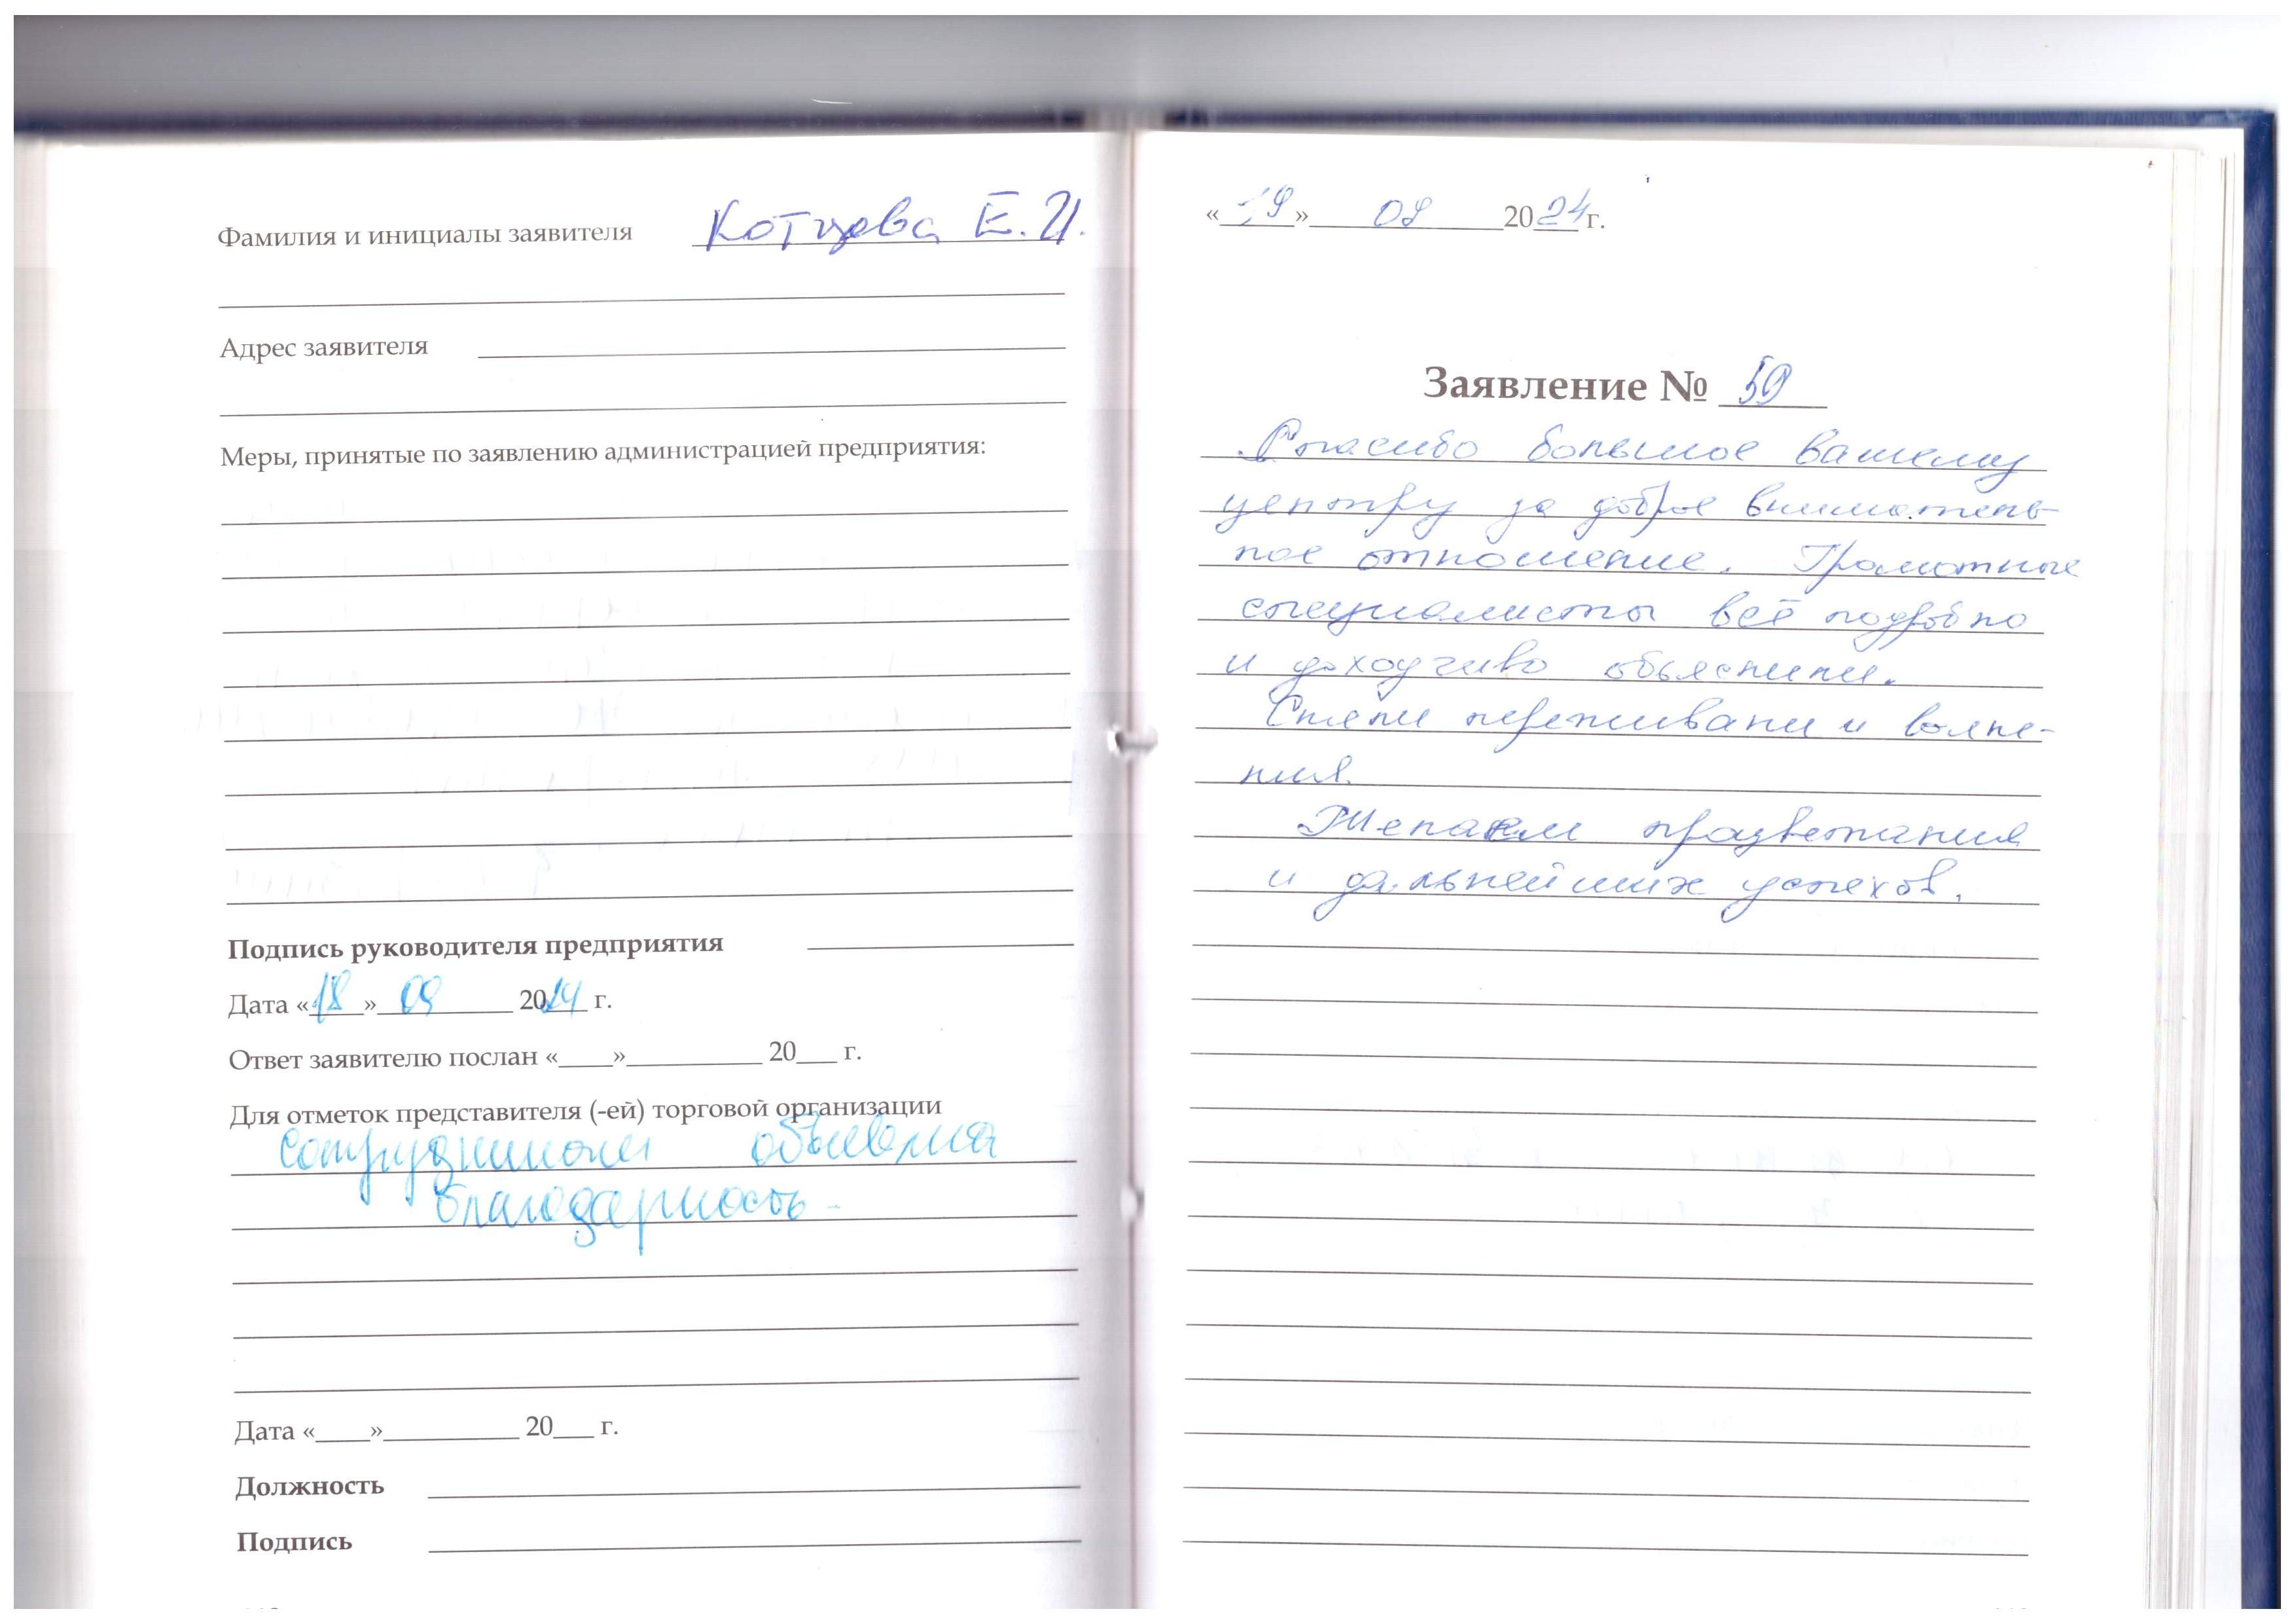 Фамилия и инициалы заявителя Котцова Е.И.
Адрес заявителя
Меры, принятые по заявлению администрацией предприятия:
Подпись руководителя предприятия
Дата «18» 09 2024 г.
Ответ заявителю послан «____»__________ 20___ г.
Для отметок представителя (-ей) торговой организации
сотрудникам объявлена
благодарность
Дата «____»__________ 20___ г.
Должность
Подпись
«19» 08 2024 г.
Заявление № 59
Спасибо большое вашему
центру за доброе вниматель-
ное отношение. Грамотные
специалисты всё подробно
и доходчиво объяснили.
Сняли переживани и волне-
ния.
Желаем процветания
и дальнейших успехов.